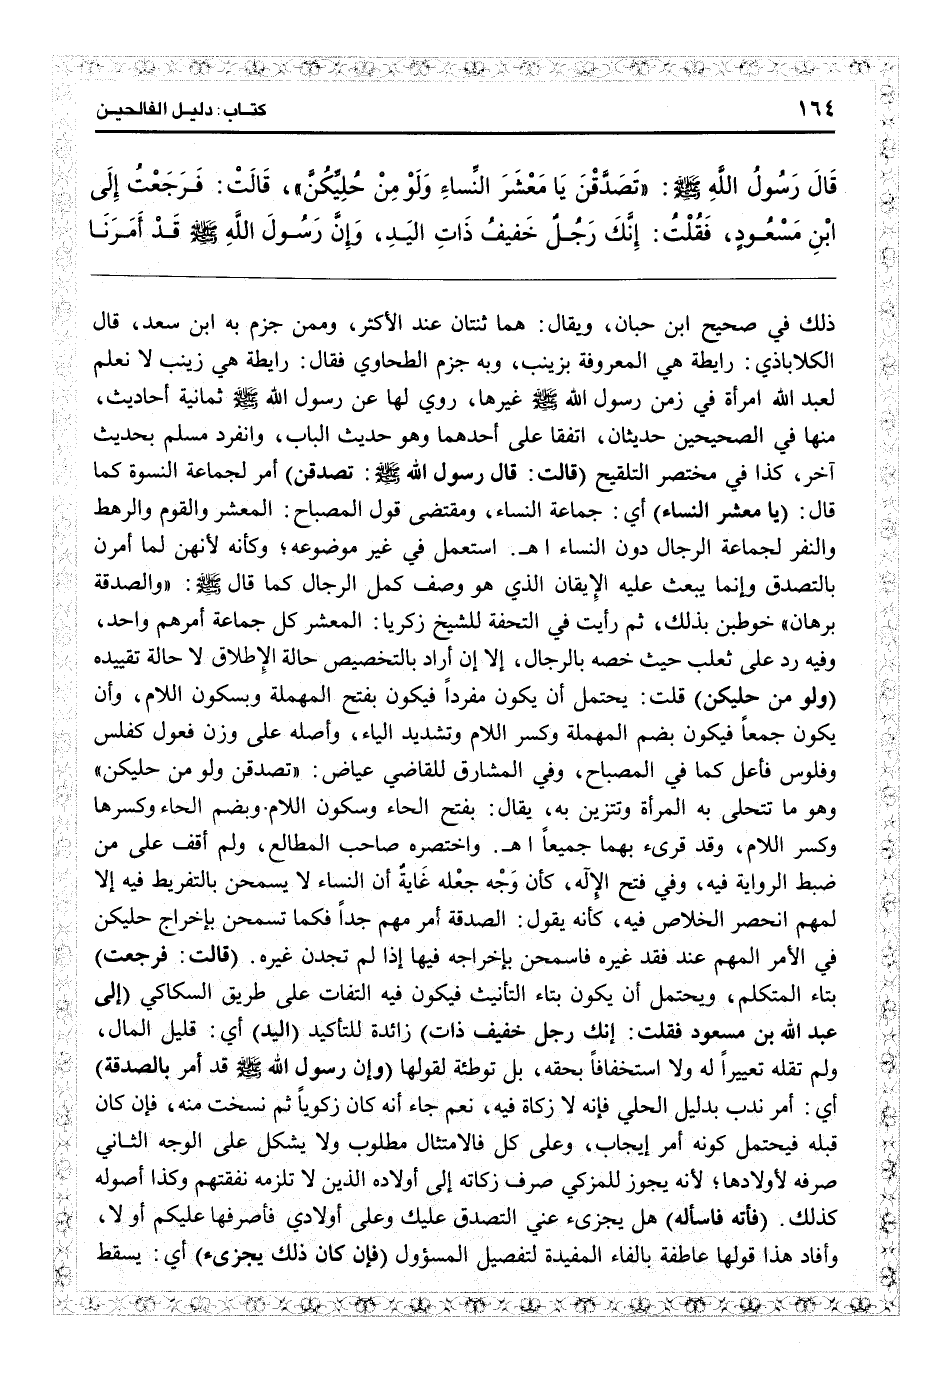 ١٦٤
كتاب: دليل الفالحين
قَالَ رَسُولُ اللَّهِ ﷺ: «تَصَدَّقْنَ يَا مَعْشَرَ النِّساءِ وَلَوْ مِنْ حُلِيِّكُنَّ»، قَالَتْ: فَرَجَعْتُ إِلَى
ابْنِ مَسْعُودٍ، فَقُلْتُ: إِنَّكَ رَجُلٌ خَفِيفُ ذَاتِ اليَدِ، وَإِنَّ رَسُولَ اللَّهِ ﷺ قَدْ أَمَرَنَا
ذلك في صحيح ابن حبان، ويقال: هما ثنتان عند الأكثر، وممن جزم به ابن سعد، قال
الكلاباذي: رايطة هي المعروفة بزينب، وبه جزم الطحاوي فقال: رايطة هي زينب لا نعلم
لعبد الله امرأة في زمن رسول الله ﷺ غيرها، روي لها عن رسول الله ﷺ ثمانية أحاديث،
منها في الصحيحين حديثان، اتفقا على أحدهما وهو حديث الباب، وانفرد مسلم بحديث
آخر، كذا في مختصر التلقيح (قالت: قال رسول الله ﷺ: تصدقن) أمر لجماعة النسوة كما
قال: (يا معشر النساء) أي: جماعة النساء، ومقتضى قول المصباح: المعشر والقوم والرهط
والنفر لجماعة الرجال دون النساء اهـ. استعمل في غير موضوعه؛ وكأنه لأنهن لما أمرن
بالتصدق وإنما يبعث عليه الإِيقان الذي هو وصف كمل الرجال كما قال ﷺ: «والصدقة
برهان» خوطبن بذلك، ثم رأيت في التحفة للشيخ زكريا: المعشر كل جماعة أمرهم واحد،
وفيه رد على ثعلب حيث خصه بالرجال، إلا إن أراد بالتخصيص حالة الإِطلاق لا حالة تقييده
(ولو من حليكن) قلت: يحتمل أن يكون مفرداً فيكون بفتح المهملة وبسكون اللام، وأن
يكون جمعاً فيكون بضم المهملة وكسر اللام وتشديد الياء، وأصله على وزن فعول كفلس
وفلوس فأعل كما في المصباح، وفي المشارق للقاضي عياض: «تصدقن ولو من حليكن»
وهو ما تتحلى به المرأة وتتزين به، يقال: بفتح الحاء وسكون اللام وبضم الحاء وكسرها
وكسر اللام، وقد قرىء بهما جميعاً اهـ. واختصره صاحب المطالع، ولم أقف على من
ضبط الرواية فيه، وفي فتح الإِلّه، كأن وَجْه جعْله غَايةٌ أن النساء لا يسمحن بالتفريط فيه إلا
لمهم انحصر الخلاص فيه، كأنه يقول: الصدقة أمر مهم جداً فكما تسمحن بإخراج حليكن
في الأمر المهم عند فقد غيره فاسمحن بإخراجه فيها إذا لم تجدن غيره. (قالت: فرجعت)
بتاء المتكلم، ويحتمل أن يكون بتاء التأنيث فيكون فيه التفات على طريق السكاكي (إلى
عبد الله بن مسعود فقلت: إنك رجل خفيف ذات) زائدة للتأكيد (اليد) أي: قليل المال،
ولم تقله تعييراً له ولا استخفافاً بحقه، بل توطئة لقولها (وإن رسول الله ﷺ قد أمر بالصدقة)
أي: أمر ندب بدليل الحلي فإنه لا زكاة فيه، نعم جاء أنه كان زكوياً ثم نسخت منه، فإن كان
قبله فيحتمل كونه أمر إيجاب، وعلى كل فالامتثال مطلوب ولا يشكل على الوجه الثاني
صرفه لأولادها؛ لأنه يجوز للمزكي صرف زكاته إلى أولاده الذين لا تلزمه نفقتهم وكذا أصوله
كذلك. (فأته فاسأله) هل يجزىء عني التصدق عليك وعلى أولادي فأصرفها عليكم أو لا،
وأفاد هذا قولها عاطفة بالفاء المفيدة لتفصيل المسؤول (فإن كان ذلك يجزىء) أي: يسقط